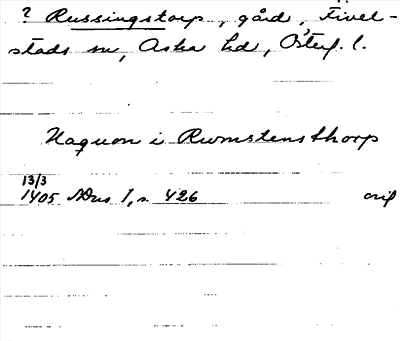 ? Russingstorp, gård, Fivel-
stads sn, Aska hd, Österg. l.
Haquon i Rwmstensthorp
13/3
1405 SDns 1, s. 426 orig